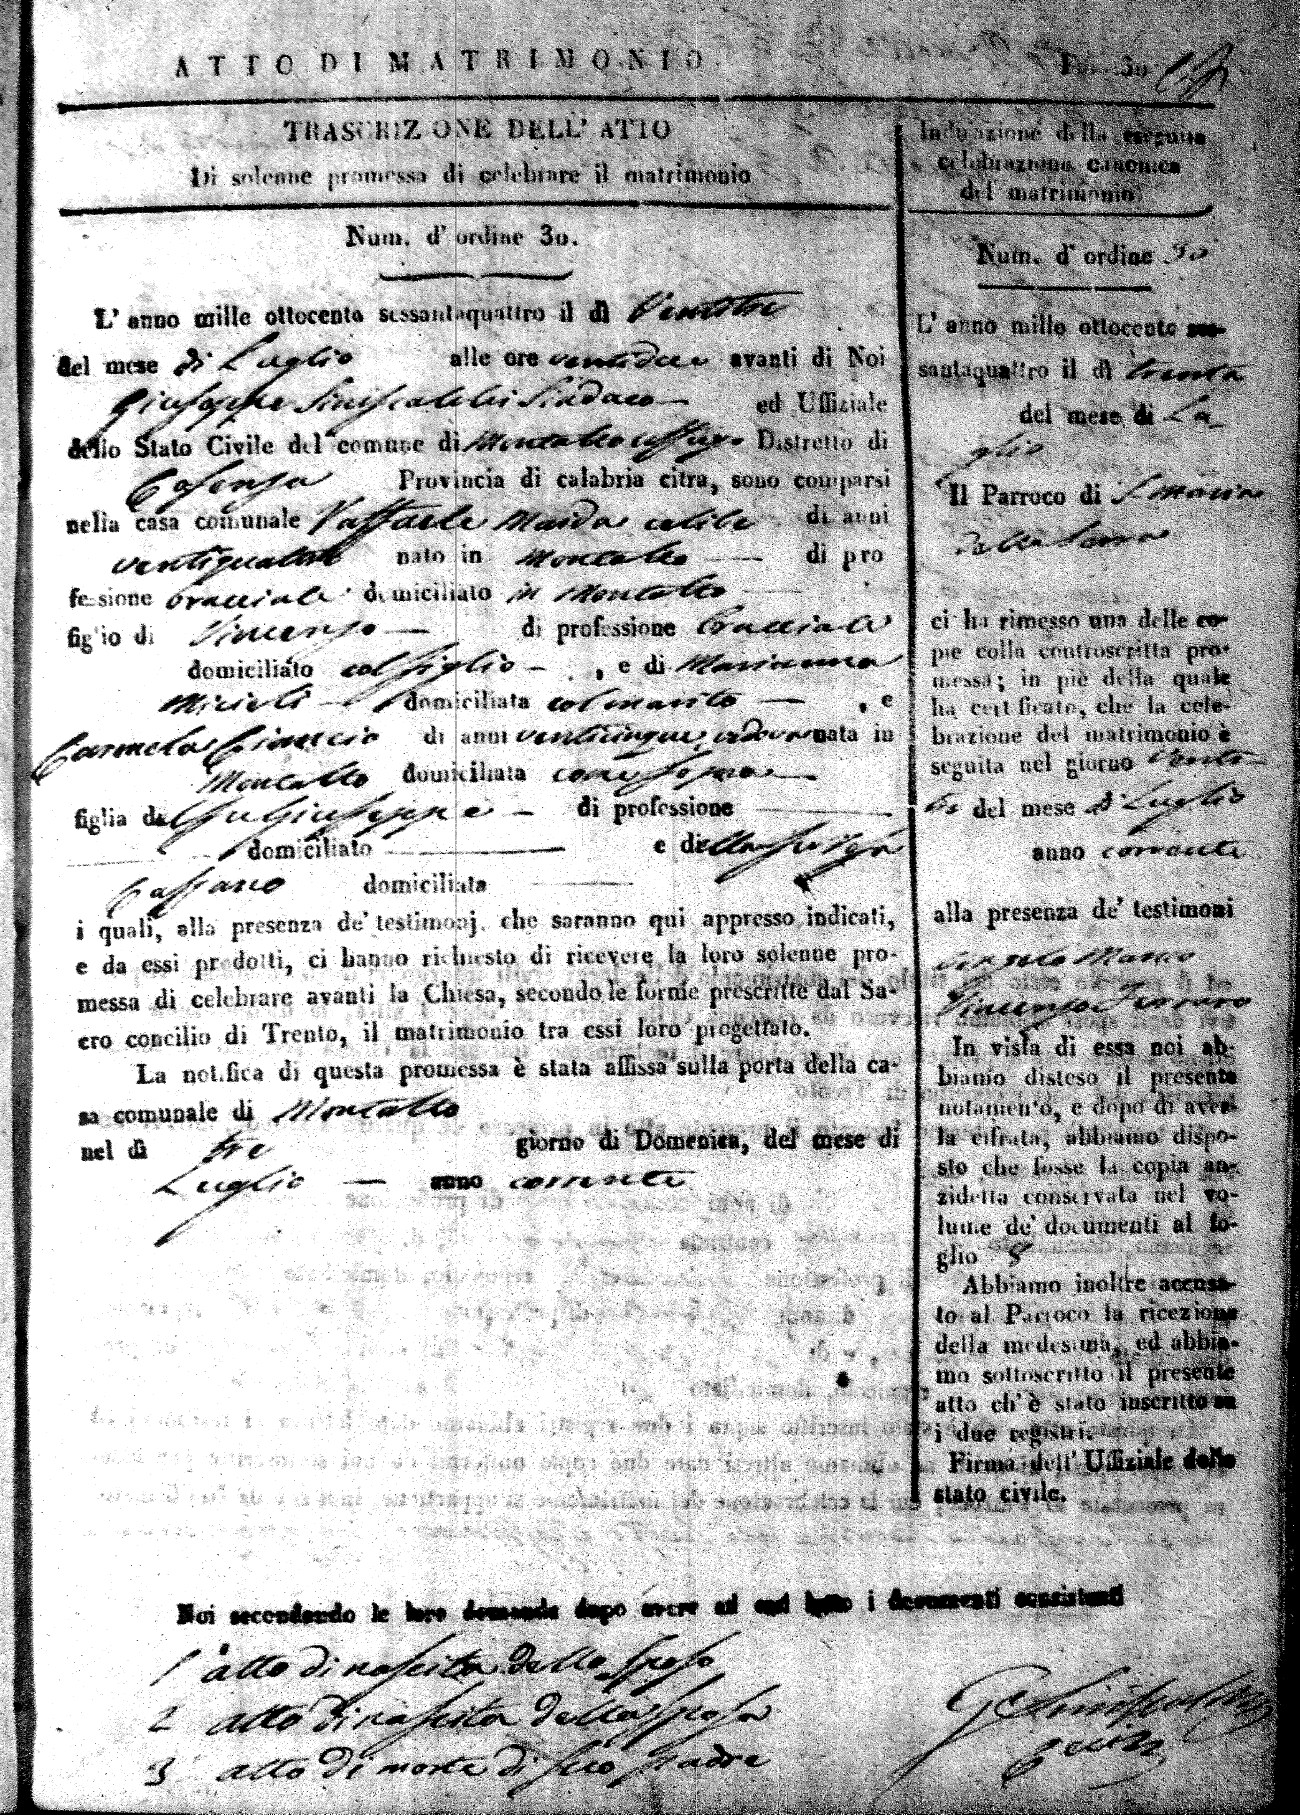 ATTO DI MATRIMONIO
TRASCRIZIONE DELL' ATTO
Di solenne promessa di celebrare il matrimonio
Num. d' ordine 30.
L' anno mille ottocento sessantaquattro il dì Ventitre
del mese di Luglio alle ore ventidue avanti di Noi
Giuseppe Siniscalchi Sindaco ed Uffiziale
dello Stato Civile del comune di Montalto uffugo Distretto di
Cosenza Provincia di calabria citra, sono comparsi
nella casa comunale Raffaele celibe di anni
ventiquattro nato in Montalto di pro
fessione bracciale domiciliato in Montalto
figlio di Vincenzo di professione bracciale
domiciliato col figlio , e di Marianna
Micieli domiciliata col marito , e
Carmela Ciancio di anni venticinque, vedova nata in
Montalto domiciliata come sopra
figlia del fu Giuseppe di professione
domiciliato e della fu
Cassano domiciliata
i quali, alla presenza de' testimonj, che saranno qui appresso indicati,
e da essi prodotti, ci hanno richiesto di ricevere la loro solenne pro-
messa di celebrare avanti la Chiesa, secondo le forme prescritte dal Sa-
cro concilio di Trento, il matrimonio tra essi loro progettato.
La notifica di questa promessa è stata affissa sulla porta della ca-
sa comunale di Montalto
nel dì tre giorno di Domenica, del mese di
Luglio anno corrente
Indicazione della seguita
celebrazione canonica
del matrimonio
Num. d' ordine 30
L' anno mille ottocento ses-
santaquattro il dì trenta
del mese di Lu
glio
Il Parroco di S. Maria
della Serra
ci ha rimesso una delle co-
pie colla controscritta pro-
messa; in piè della quale
ha certificato, che la cele-
brazione del matrimonio è
seguita nel giorno Venti
del mese di Luglio
anno corrente
alla presenza de' testimoni
Angelo Marco
Vincenzo
In vista di essa noi ab-
biamo disteso il presente
notamento, e dopo di aver-
la cifrata, abbiamo dispo-
sto che fosse la copia an-
zidetta conservata nel vo-
lume de' documenti al fo-
glio 8
Abbiamo inoltre accusa-
to al Parroco la ricezione
della medesima, ed abbia-
mo sottoscritto il presente
atto ch' è stato inscritto su
i due registri.
Firma dell' Uffiziale dello
stato civile.
Noi secondando le loro domande dopo avere ad essi letto i documenti consistenti
1 atto di nascita dello sposo
2 atto di nascita della sposa
3 atto di morte di suo padre